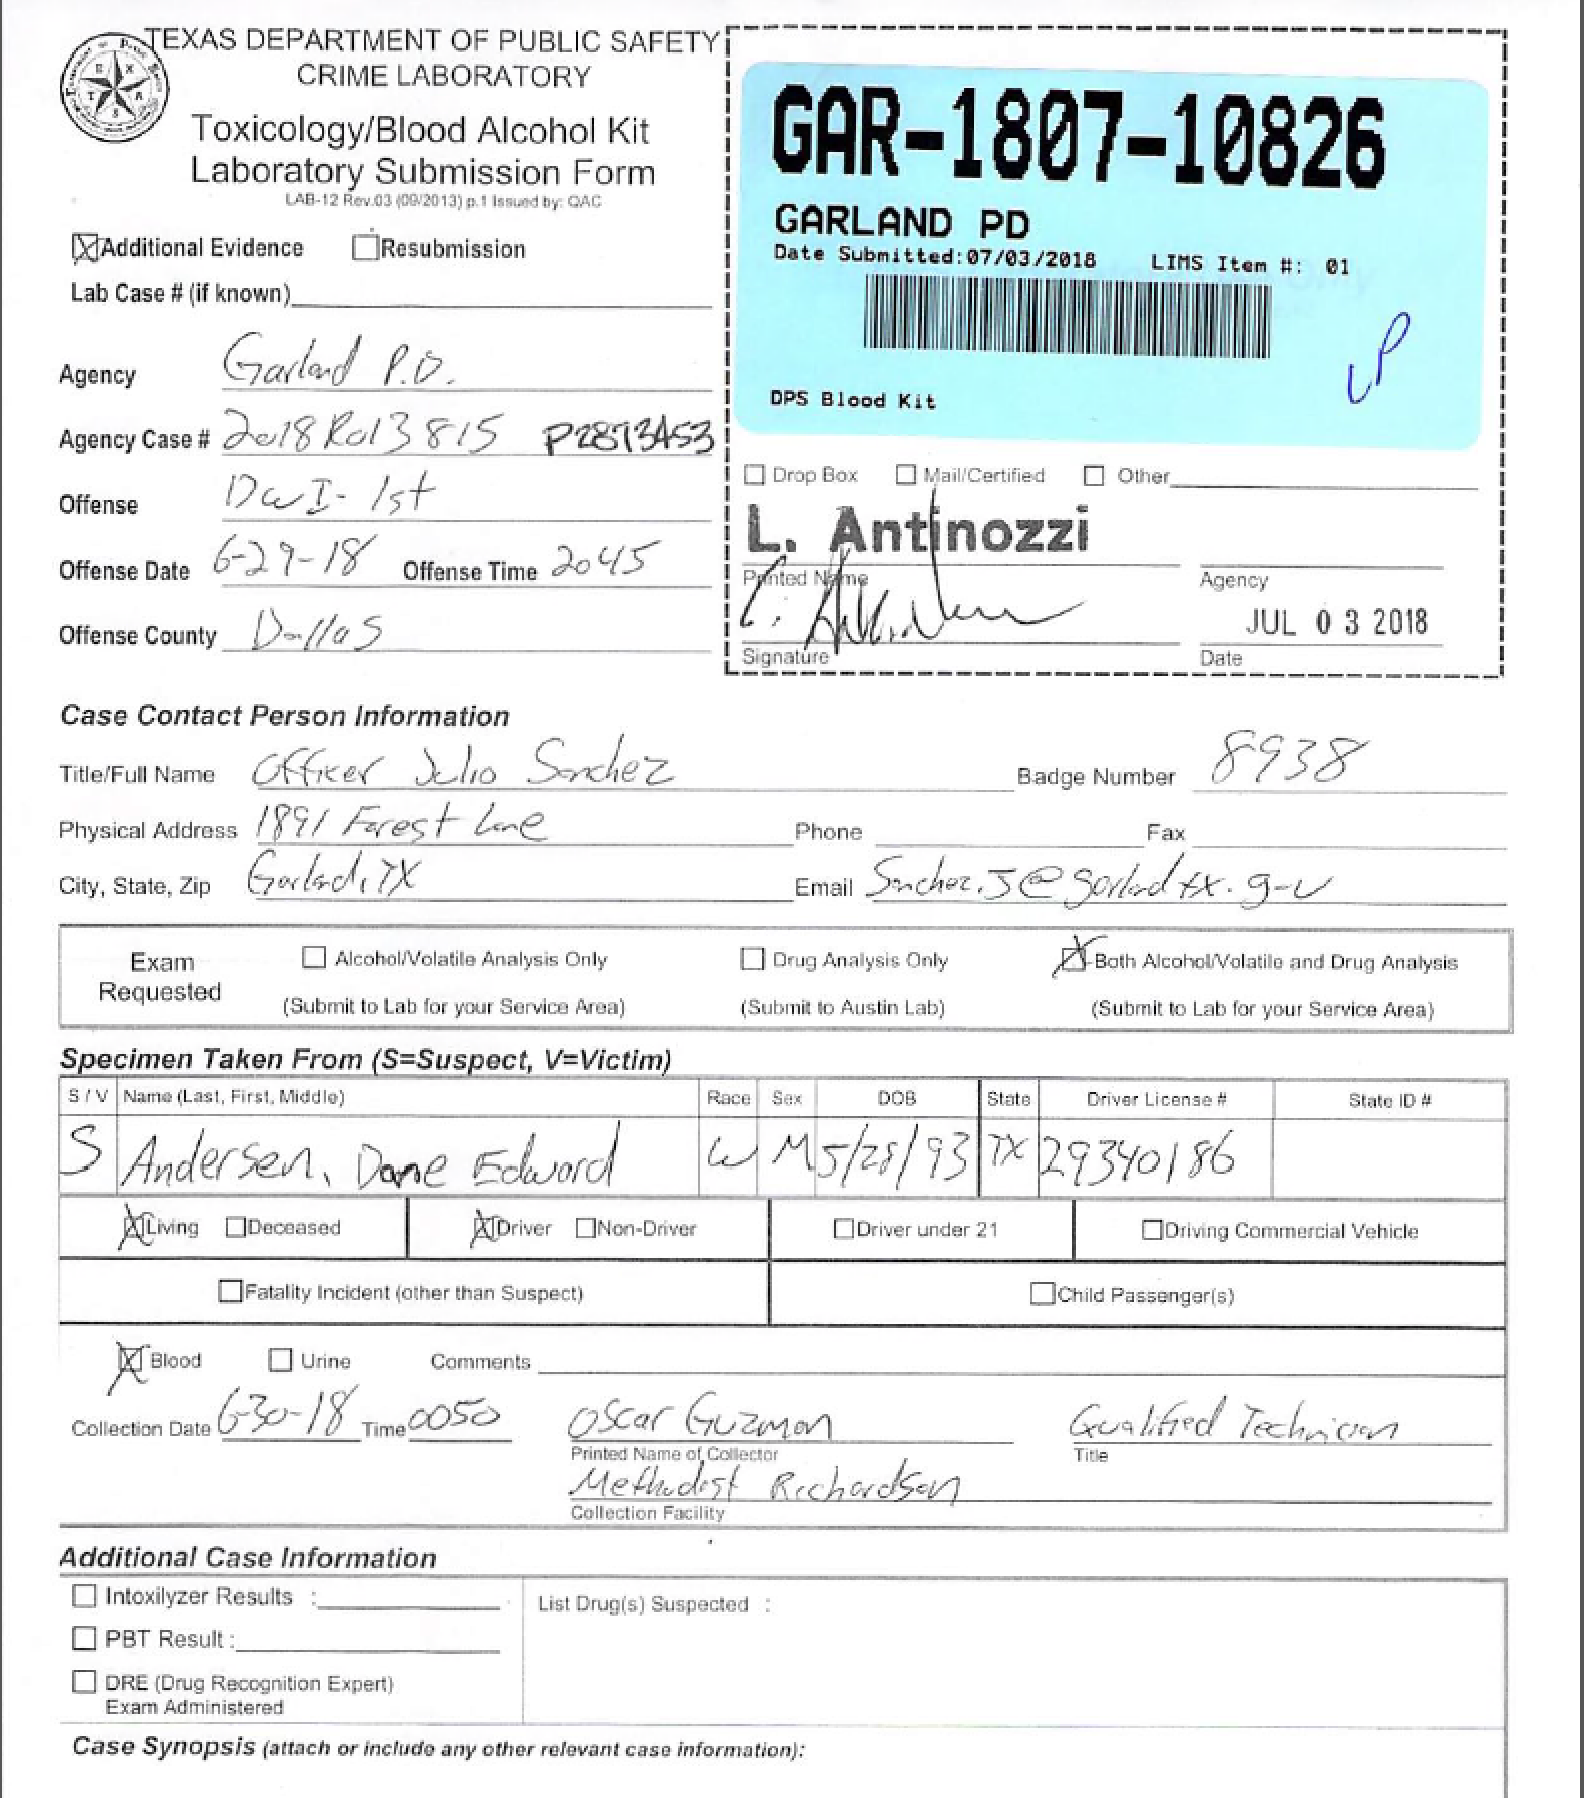 TEXAS DEPARTMENT OF PUBLIC SAFETY
CRIME LABORATORY
Toxicology/Blood Alcohol Kit
Laboratory Submission Form
LAB-12 Rev.03 (09/2013) p.1 Issued by: QAC
Additional Evidence Resubmission
Lab Case # (if known)
Agency Garland P.D.
Agency Case # 2018R013815 P2873453
Offense DWI-1st
Offense Date 6-29-18 Offense Time 2045
Offense County Dallas
GAR-1807-10826
GARLAND PD
Date Submitted:07/03/2018 LIMS Item #: 01
LP
DPS Blood Kit
Drop Box Mail/Certified Other
L. Antinozzi
Printed Name Agency
JUL 03 2018
Signature Date
Case Contact Person Information
Title/Full Name Officer Julio Sanchez Badge Number 8938
Physical Address 1891 Forest Lane Phone Fax
City, State, Zip Garland, TX Email Sanchez.J@garlandtx.gov
Exam Requested
Alcohol/Volatile Analysis Only Drug Analysis Only Both Alcohol/Volatile and Drug Analysis
(Submit to Lab for your Service Area) (Submit to Austin Lab) (Submit to Lab for your Service Area)
Specimen Taken From (S=Suspect, V=Victim)
S / V Name (Last, First, Middle) Race Sex DOB State Driver License # State ID #
S Andersen, Dane Edward W M 5/28/93 TX 29340186
Living Deceased Driver Non-Driver Driver under 21 Driving Commercial Vehicle
Fatality Incident (other than Suspect) Child Passenger(s)
Blood Urine Comments
Collection Date 6-30-18 Time 0050 Oscar Guzman Qualified Technician
Printed Name of Collector Title
Methodist Richardson
Collection Facility
Additional Case Information
Intoxilyzer Results : List Drug(s) Suspected :
PBT Result :
DRE (Drug Recognition Expert)
Exam Administered
Case Synopsis (attach or include any other relevant case information):